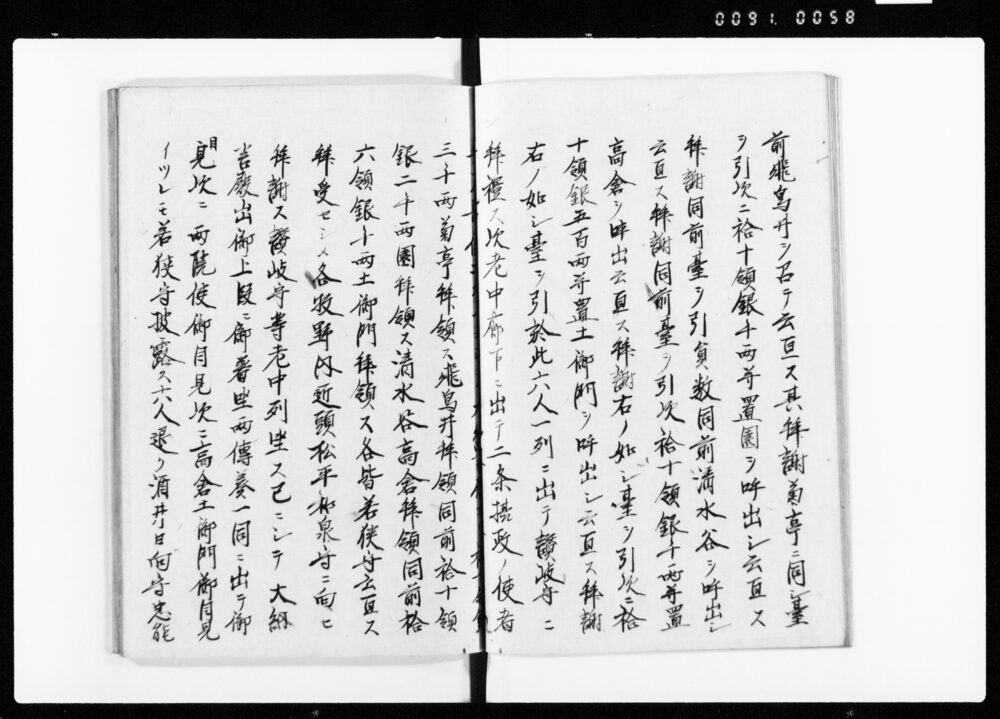 0091.0058
前飛鳥井ヲ召テ云亘ス其拜謝菊亭ニ同シ臺
ヲ引次ニ袷十領銀千両并置園ヲ呼出シ云亘ス
拜謝同前臺ヲ引負数同前清水谷ヲ呼出シ
云亘ス拜謝同前臺ヲ引次袷十領銀千両并置
高倉ヲ呼出云亘ス拜謝右ノ如シ臺ヲ引次ニ袷
十領銀五百両并置土御門ヲ呼出シ云亘ス拜謝
右ノ如シ臺ヲ引於此六人一列ニ出テ讃岐守ニ
拜禮ス次老中廊下ニ出テ二条攝政ノ使者
三千両菊亭拜領ス飛鳥井拜領同前袷十領
銀二千両園拜領ス清水谷高倉拜領同前袷
六領銀千両土御門拜領ス各皆若狭守云亘ス
拜受セシメ各牧野内近頭松平和泉守ニ向ヒ
拜謝ス讃岐守等老中列坐ス已ニシテ大納
言殿出御上段ニ御着坐両傳奏一同ニ出テ御
目見次ニ両院使御目見次ニ高倉土御門御目見
イツレモ若狭守披露ス六人退ク酒井日向守忠能